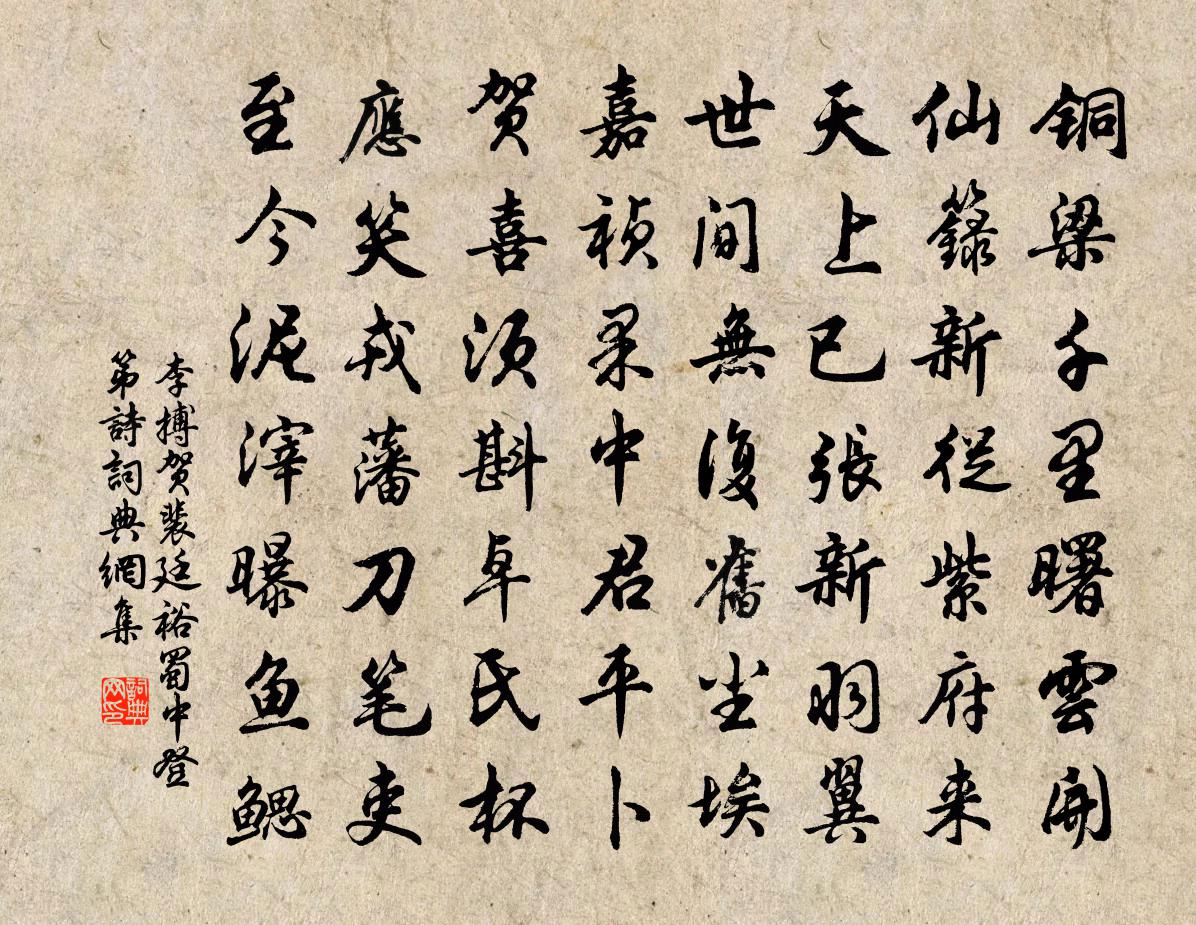 铜梁千里曙雲開
仙籙新從紫府来
天上已張新羽翼
世間無復舊尘埃
嘉祯果中君平卜
贺喜须斟卓氏杯
應笑戎藩刀笔吏
至今泥滓曝鱼鳃
李搏贺裴廷裕蜀中登
第詩詞典網集
詞典
网印